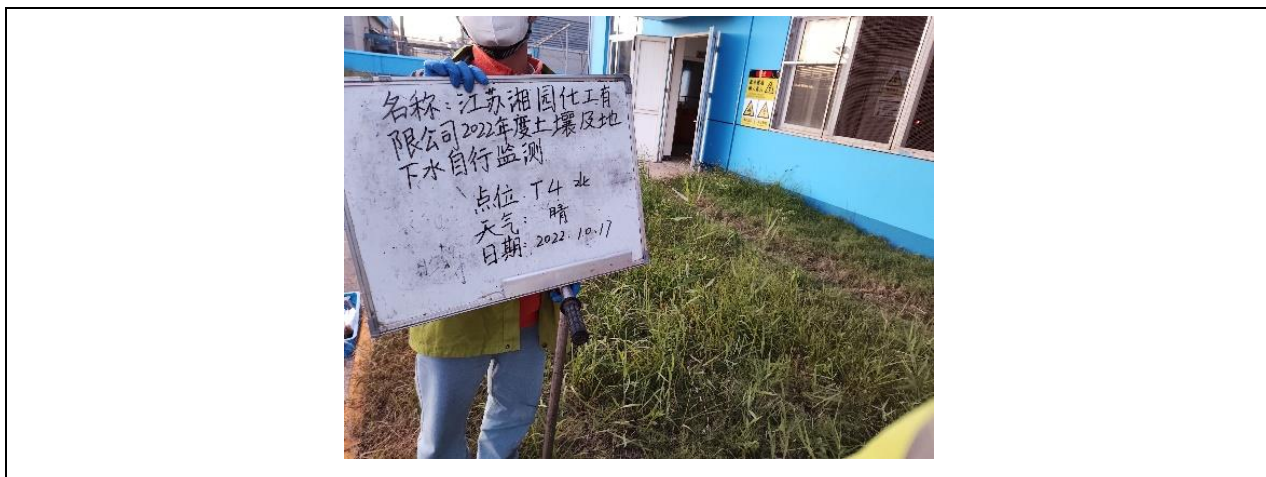 名称：江苏湘园化工有
限公司2022年度土壤及地
下水自行监测
点位 T4
天气：晴
日期：2022.10.17